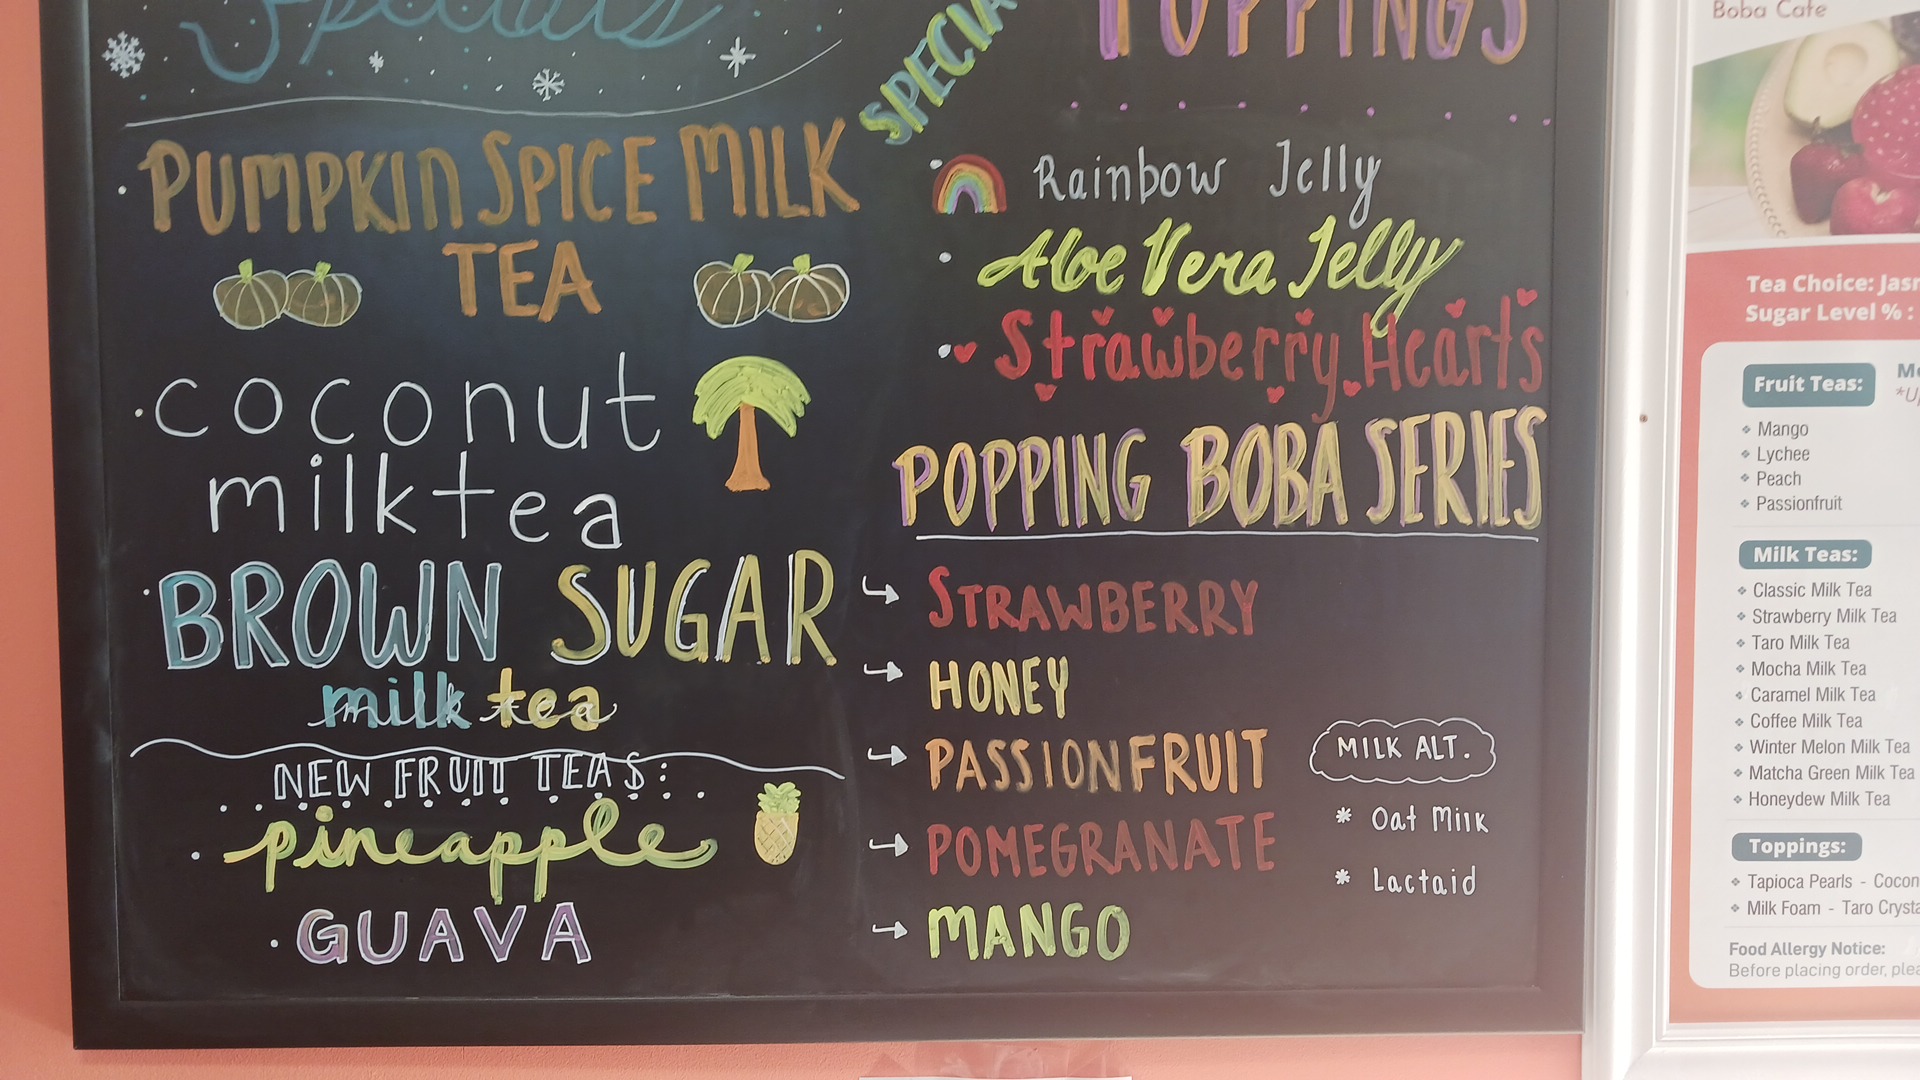 Specials
PUMPKIN SPICE MILK
TEA
coconut
milk tea
BROWN SUGAR
milk tea
NEW FRUIT TEAS:
pineapple
GUAVA
TOPPINGS
Rainbow Jelly
Aloe Vera Jelly
Strawberry Hearts
POPPING BOBA SERIES
STRAWBERRY
HONEY
PASSIONFRUIT
POMEGRANATE
MANGO
MILK ALT.
* Oat Milk
* Lactaid
Boba Cafe
Tea Choice:
Sugar Level % :
Fruit Teas:
Mango
Lychee
Peach
Passionfruit
Milk Teas:
Classic Milk Tea
Strawberry Milk Tea
Taro Milk Tea
Mocha Milk Tea
Caramel Milk Tea
Coffee Milk Tea
Winter Melon Milk Tea
Matcha Green Milk Tea
Honeydew Milk Tea
Toppings:
Tapioca Pearls -
Milk Foam - Taro
Food Allergy Notice:
Before placing order,